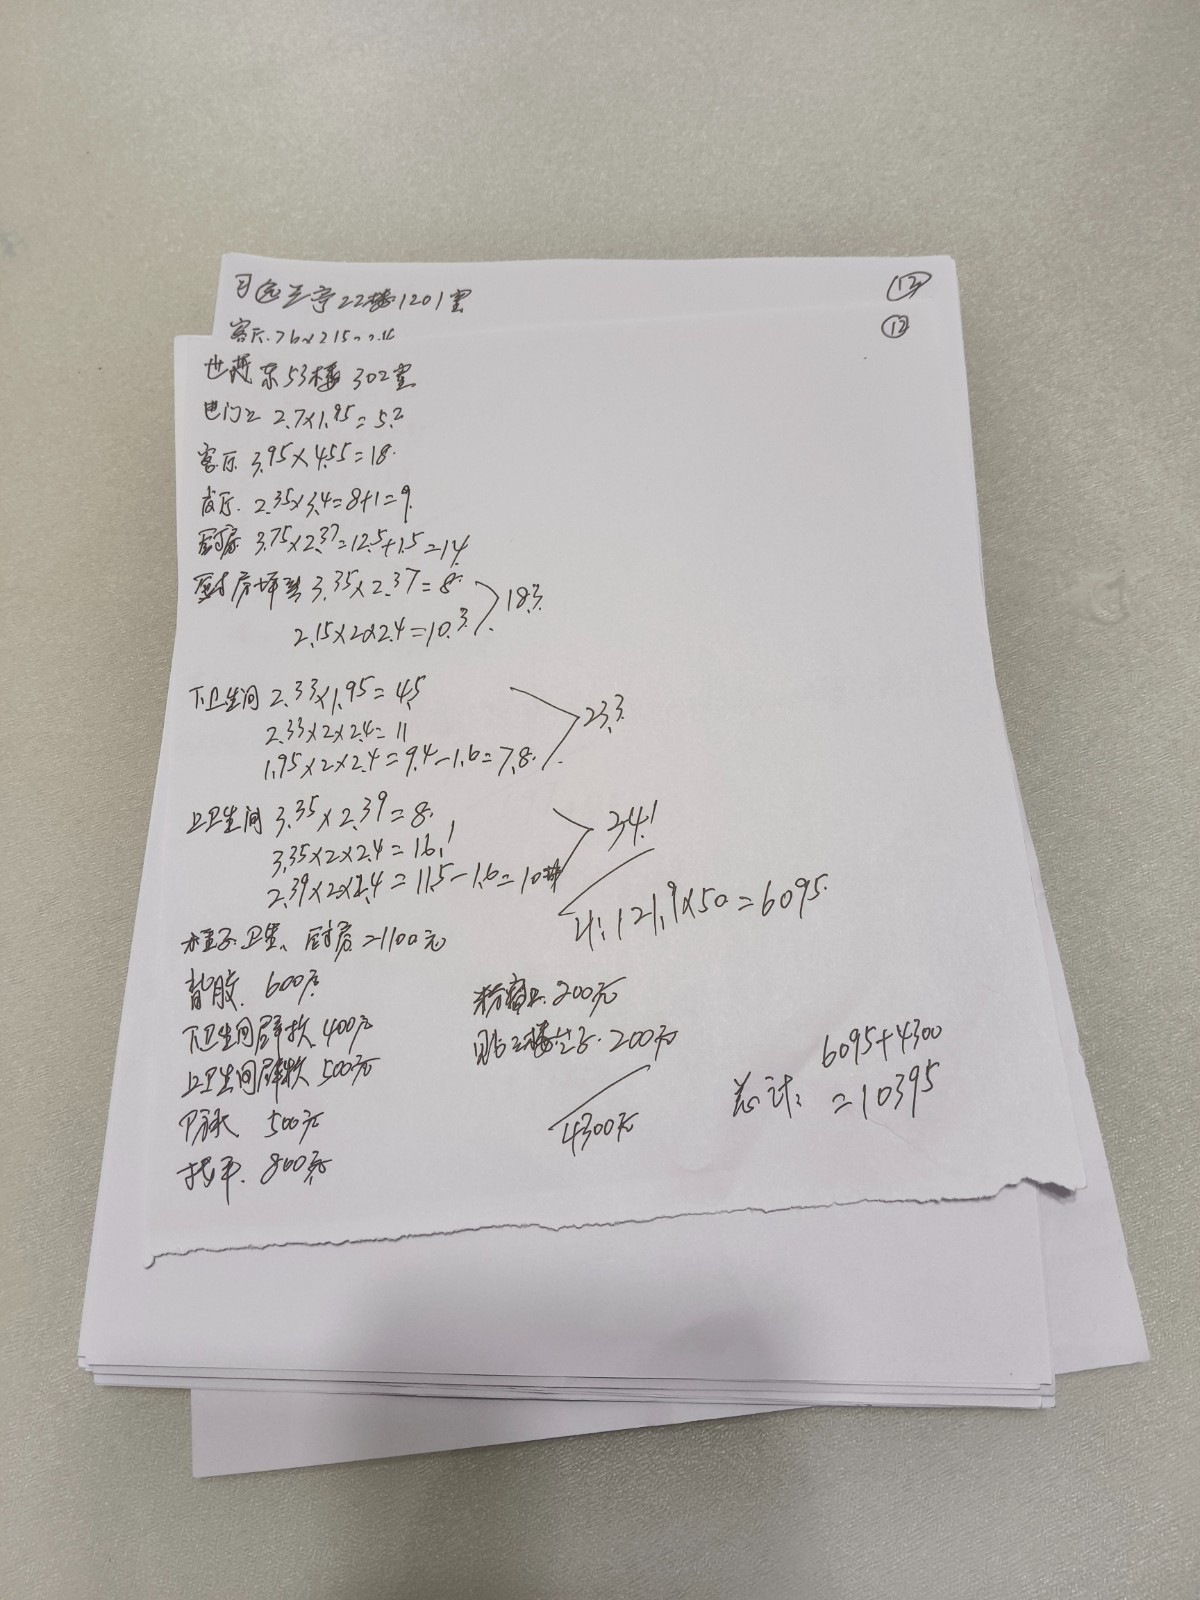 兰亭22楼1201室 ⑫
客厅 ⑫
世 东53楼 302室
进门 2.7×1.95=5.2
客厅 3.95×4.55=18
2.35×3.4=8+1=9
厨房 3.75×2.37=12.5+1.5=14
厨房 3.35×2.37=8
2.15×2×2.4=10.3
18.3
下卫生间 2.33×1.95=4.5
2.33×2×2.4=11
1.95×2×2.4=9.4-1.6=7.8
23.3
上卫生间 3.35×2.39=8
3.35×2×2.4=16.1
2.39×2×2.4=11.5-1.6=10
34.1
121.9×50=6095
卫生、厨房=1100元
背胶 600元
下卫生间 400元
上卫生间 500元
防水 500元
找平 800元
200元
贴 楼 200元
4300元
总计: 6095+4300
=10395